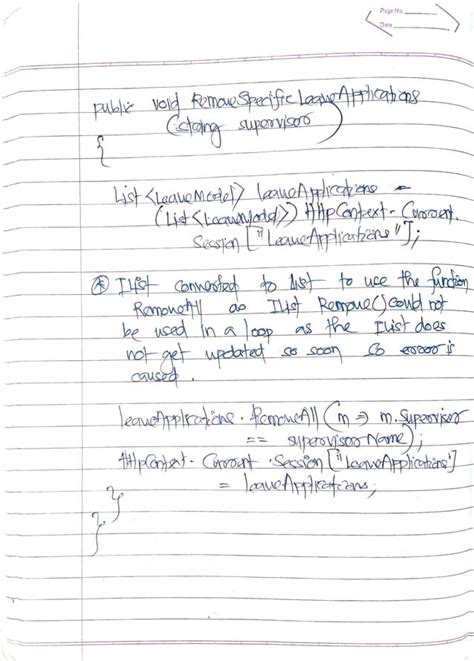 Page No.
Date
public void RemoveSpecificLeaveApplications
(string supervisor)
{
List<LeaveModel> leaveApplications =
(List<LeaveModel>) HttpContext.Current.
Session["LeaveApplications"];
* IList converted to list to use the function
RemoveAll as IList Remove() could not
be used in a loop as the IList does
not get updated so soon so error is
caused.
leaveApplications.RemoveAll(m => m.Supervisor
== supervisorName);
HttpContext.Current.Session["LeaveApplications"]
= leaveApplications;
}
}